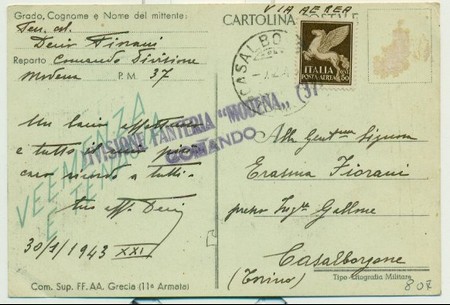 Grado, Cognome e Nome del mittente:
Ten. col.
Reparto Comando Divisione
Modena P.M. 37
VIA AEREA
CARTOLINA POSTALE
CASALBO
ITALIA
POSTA AEREA
50
VEEMENZA
E TENACIA
DIVISIONE FANTERIA "MODENA" (37
COMANDO
Un bacio
e tutto il mio più
caro ricordo a tutti.
tuo
30/1/1943 XXI
Com. Sup. FF. AA. Grecia (11ª Armata)
Alla Signora
Erasma Fiorani
presso Gallone
Casalborgone
(Torino)
Tipo-Litografia Militare
807